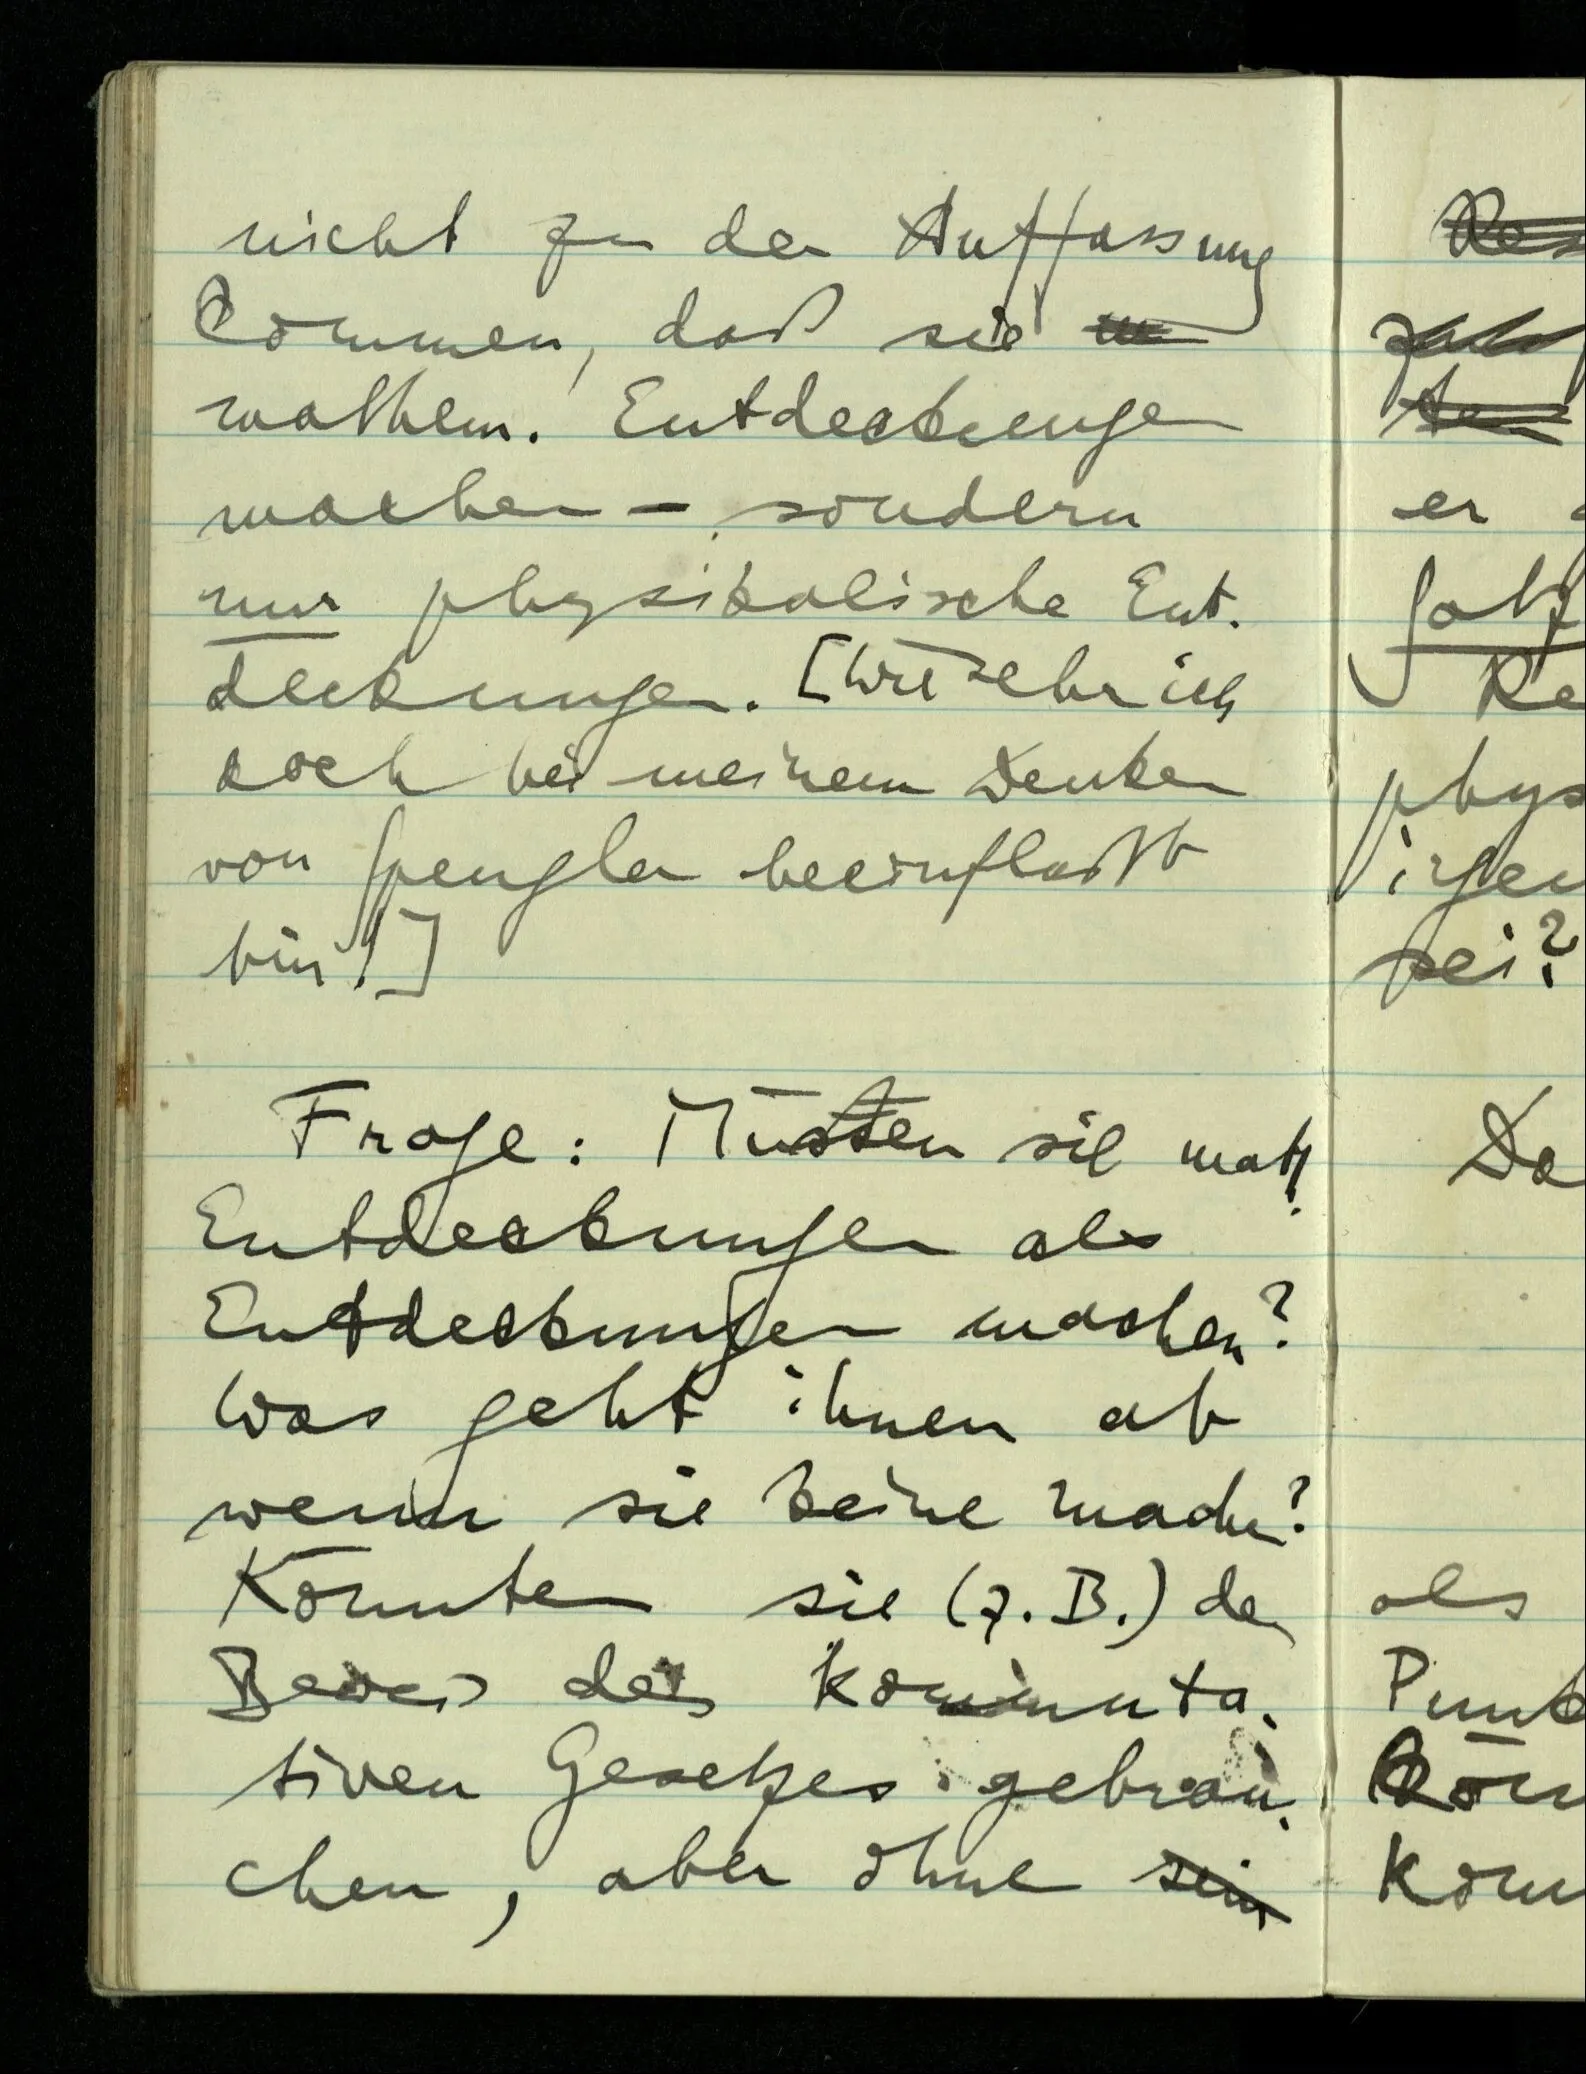 nicht zu der Auffassung
kommen, daß sie
mathem. Entdeckungen
machen – sondern
nur physikalische Ent-
deckungen. [Wie sehr ich
doch bei meinem Denken
von Spengler beeinflußt
bin!]
Frage: Müssen sie math.
Entdeckungen als
Entdeckungen machen?
Was geht ihnen ab
wenn sie keine machen?
Könnten sie (z.B.) den
Beweis des kommuta-
tiven Gesetzes gebrau-
chen, aber ohne sein
er
phys
irgen
sei?
Da
als
Punk
Kön
Kom